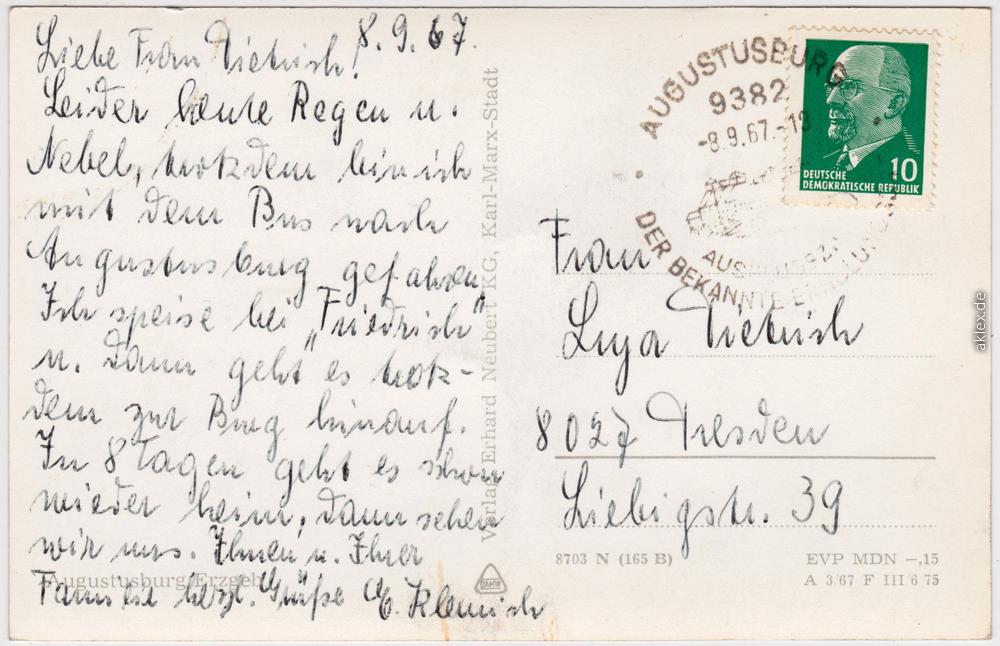 8.9.67.
Liebe Frau Dietrich!
Leider heute Regen u.
Nebel, trotzdem bin ich
mit dem Bus nach
Augustusburg gefahren.
Ich speise bei „Friedrich"
u. dann geht es trotz-
dem zur Burg hinauf.
In 8 Tagen geht es schon
wieder heim, dann sehen
wir uns. Ihnen u. Ihrer
Familie herzl. Grüße
Augustusburg/Erzgeb.
Verlag Erhard Neubert KG, Karl-Marx-Stadt
AUGUSTUSBURG
9382
-8.9.67.-
DER BEKANNTE
DEUTSCHE
DEMOKRATISCHE REPUBLIK
10
Frau
Dietrich
8027 Dresden
Liebigstr. 39
8703 N (165 B)
EVP MDN –,15
A 3/67 F III/6 75
aklex.de